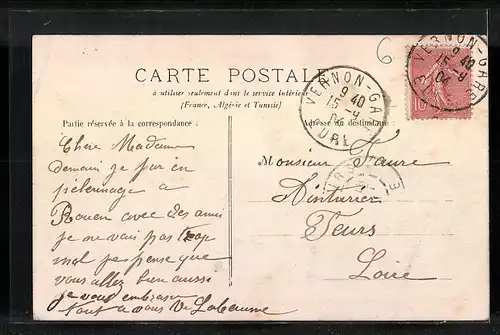 6
CARTE POSTALE
à utiliser seulement dans le service intérieur
(France, Algérie et Tunisie)
Partie réservée à la correspondance :
Adresse du destinataire
VERNON-GARE
9 40
15 - 9
04
EURE
VERNON-GA
9 40
15 - 9
04
EURE
10
Chere Madame
demain je par en
pèlerinage a
Rouen avec des amis
je ne vais pas trop
mal je pense que
vous allez bien aussi
je vous embrasse
tout a vous Vve Labaume
Monsieur Faure
Teinturier
Feurs
Loire